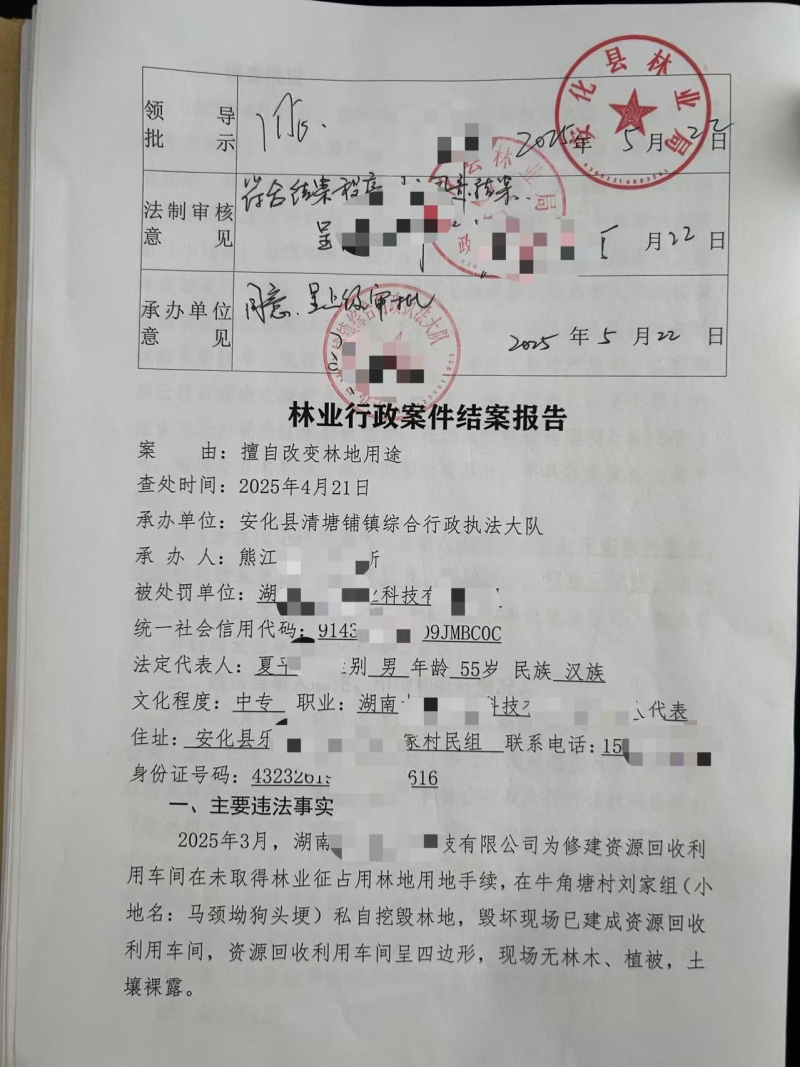 领导
批示
2025年5月22日
安化县林业局
符合结案程序
同意结案.
法制审核
意见
呈
5月22日
林业局
政
同意.呈上级审批
承办单位
意见
2025年5月22日
综合行政执法大队
林业行政案件结案报告
案由：擅自改变林地用途
查处时间：2025年4月21日
承办单位：安化县清塘铺镇综合行政执法大队
承办人：熊江
被处罚单位：湖 科技有
统一社会信用代码：9143 09JMBC0C
法定代表人：夏 别 男 年龄 55岁 民族 汉族
文化程度：中专 职业：湖南 科技 代表
住址：安化县乐 家村民组 联系电话：15
身份证号码：43232619 616
一、主要违法事实
2025年3月，湖南 技有限公司为修建资源回收利
用车间在未取得林业征占用林地用地手续，在牛角塘村刘家组（小
地名：马颈坳狗头埂）私自挖毁林地，毁坏现场已建成资源回收
利用车间，资源回收利用车间呈四边形，现场无林木、植被，土
壤裸露。